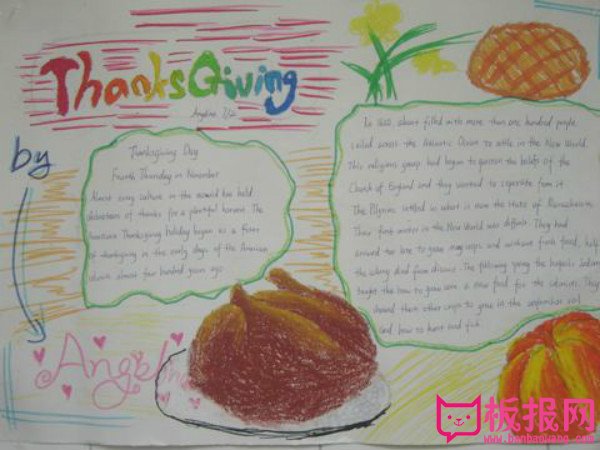 ThanksGiving
by
Angelina
Thanksgiving Day
Fourth Thursday in November
Almost every culture in the world has held
of thanks for a plentiful harvest. The
Thanksgiving holiday began as a feast
of thanksgiving in the early days of the American
almost four hundred years ago.
In 1620, a boat filled with more than one hundred people
sailed across the Atlantic Ocean to settle in the New World.
This religious group had begun to question the beliefs of the
Church of England and they wanted to separate from it.
The Pilgrims settled in what is now the state of Massachusetts.
Their first winter in the New World was difficult. They had
arrived too late to grow many crops, and without fresh food, half
the colony died from disease. The following spring the Indians
taught the how to grow corn a new food for the colonists. They
showed them other crops to grow in the soil
and how to hunt and fish.
板报网
www.banbaowang.com